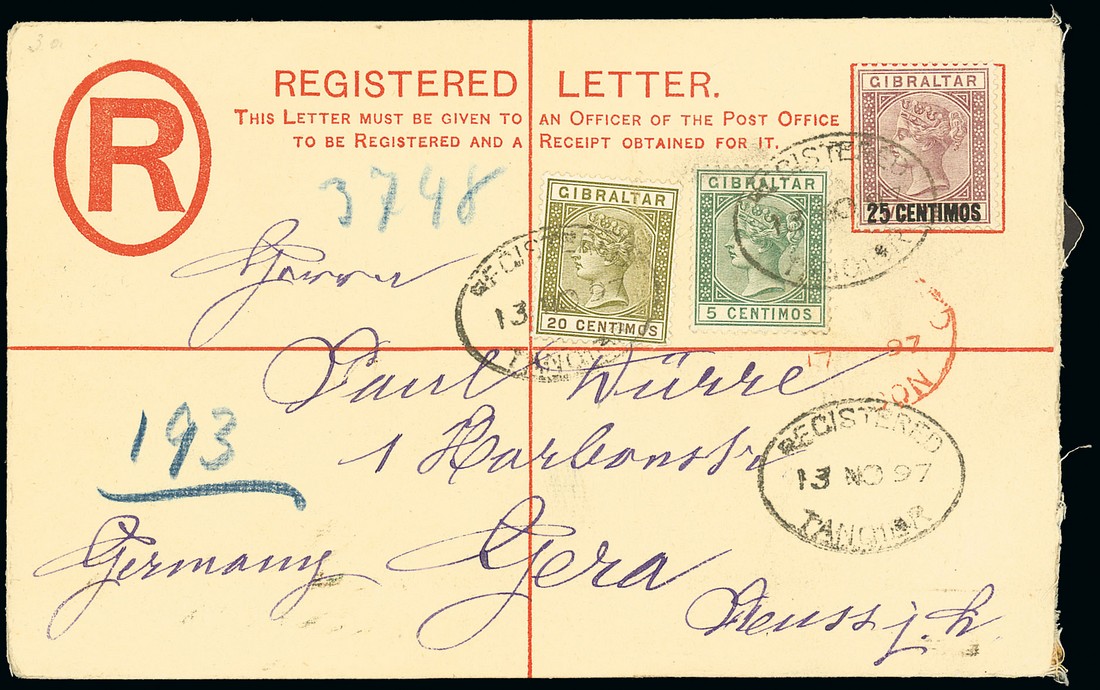 R
REGISTERED LETTER.
THIS LETTER MUST BE GIVEN TO AN OFFICER OF THE POST OFFICE
TO BE REGISTERED AND A RECEIPT OBTAINED FOR IT.
GIBRALTAR
25 CENTIMOS
GIBRALTAR
20 CENTIMOS
GIBRALTAR
5 CENTIMOS
3748
REGISTERED
13
TANGIER
REGISTERED
13
TANGIER
Paul Dürre
1
193
Germany
Gera
Reuss j. L.
17 NO 97
REGISTERED
13 NO 97
TANGIER